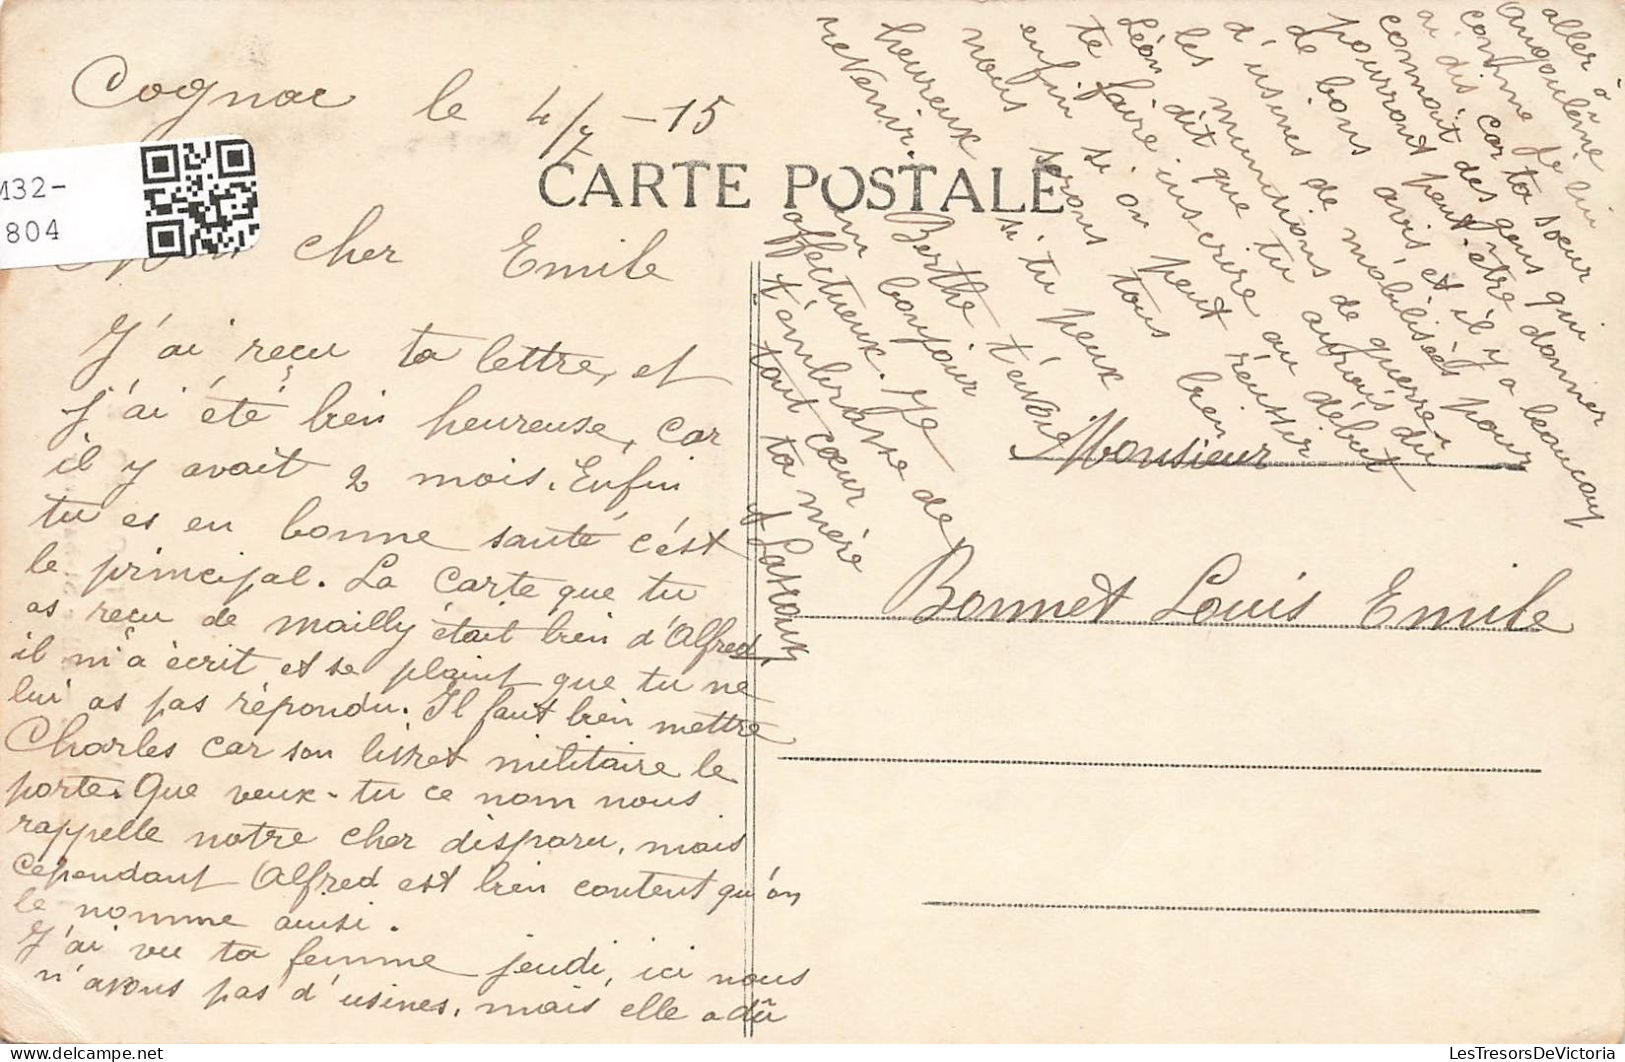 Cognac le 4/7 - 15
CARTE POSTALE
M32-
804
Mon cher Emile
J'ai reçu ta lettre, et
j'ai été bien heureuse, car
il y avait 2 mois. Enfin
tu es en bonne santé c'est
le principal. La carte que tu
as reçu de Mailly était bien d'Alfred,
il m'a écrit et se plaint que tu ne
lui as pas répondu. Il faut bien mettre
Charles car son livret militaire le
porte. Que veux-tu ce nom nous
rappelle notre cher disparu, mais
cependant Alfred est bien content qu'on
le nomme ainsi.
J'ai vu ta femme jeudi, ici nous
n'avons pas d'usines, mais elle a dû
aller à
Angoulême lui
comme je
ai dis car ta sœur
connait des gens qui
pourront peut-être donner
de bons avis, et il y a beaucoup
d'usines de mobilisés pour
les munitions de guerre
Léon dit que tu aurais dû
te faire inscrire au début
enfin si on peut réussir
nous serons tous bien
heureux si tu peux
revenir.
Berthe t'envoie
un bonjour
affectueux. Je
t'embrasse de
tout cœur
ta mère
Monsieur
Bonnet Louis Emile
LesTresorsDeVictoria